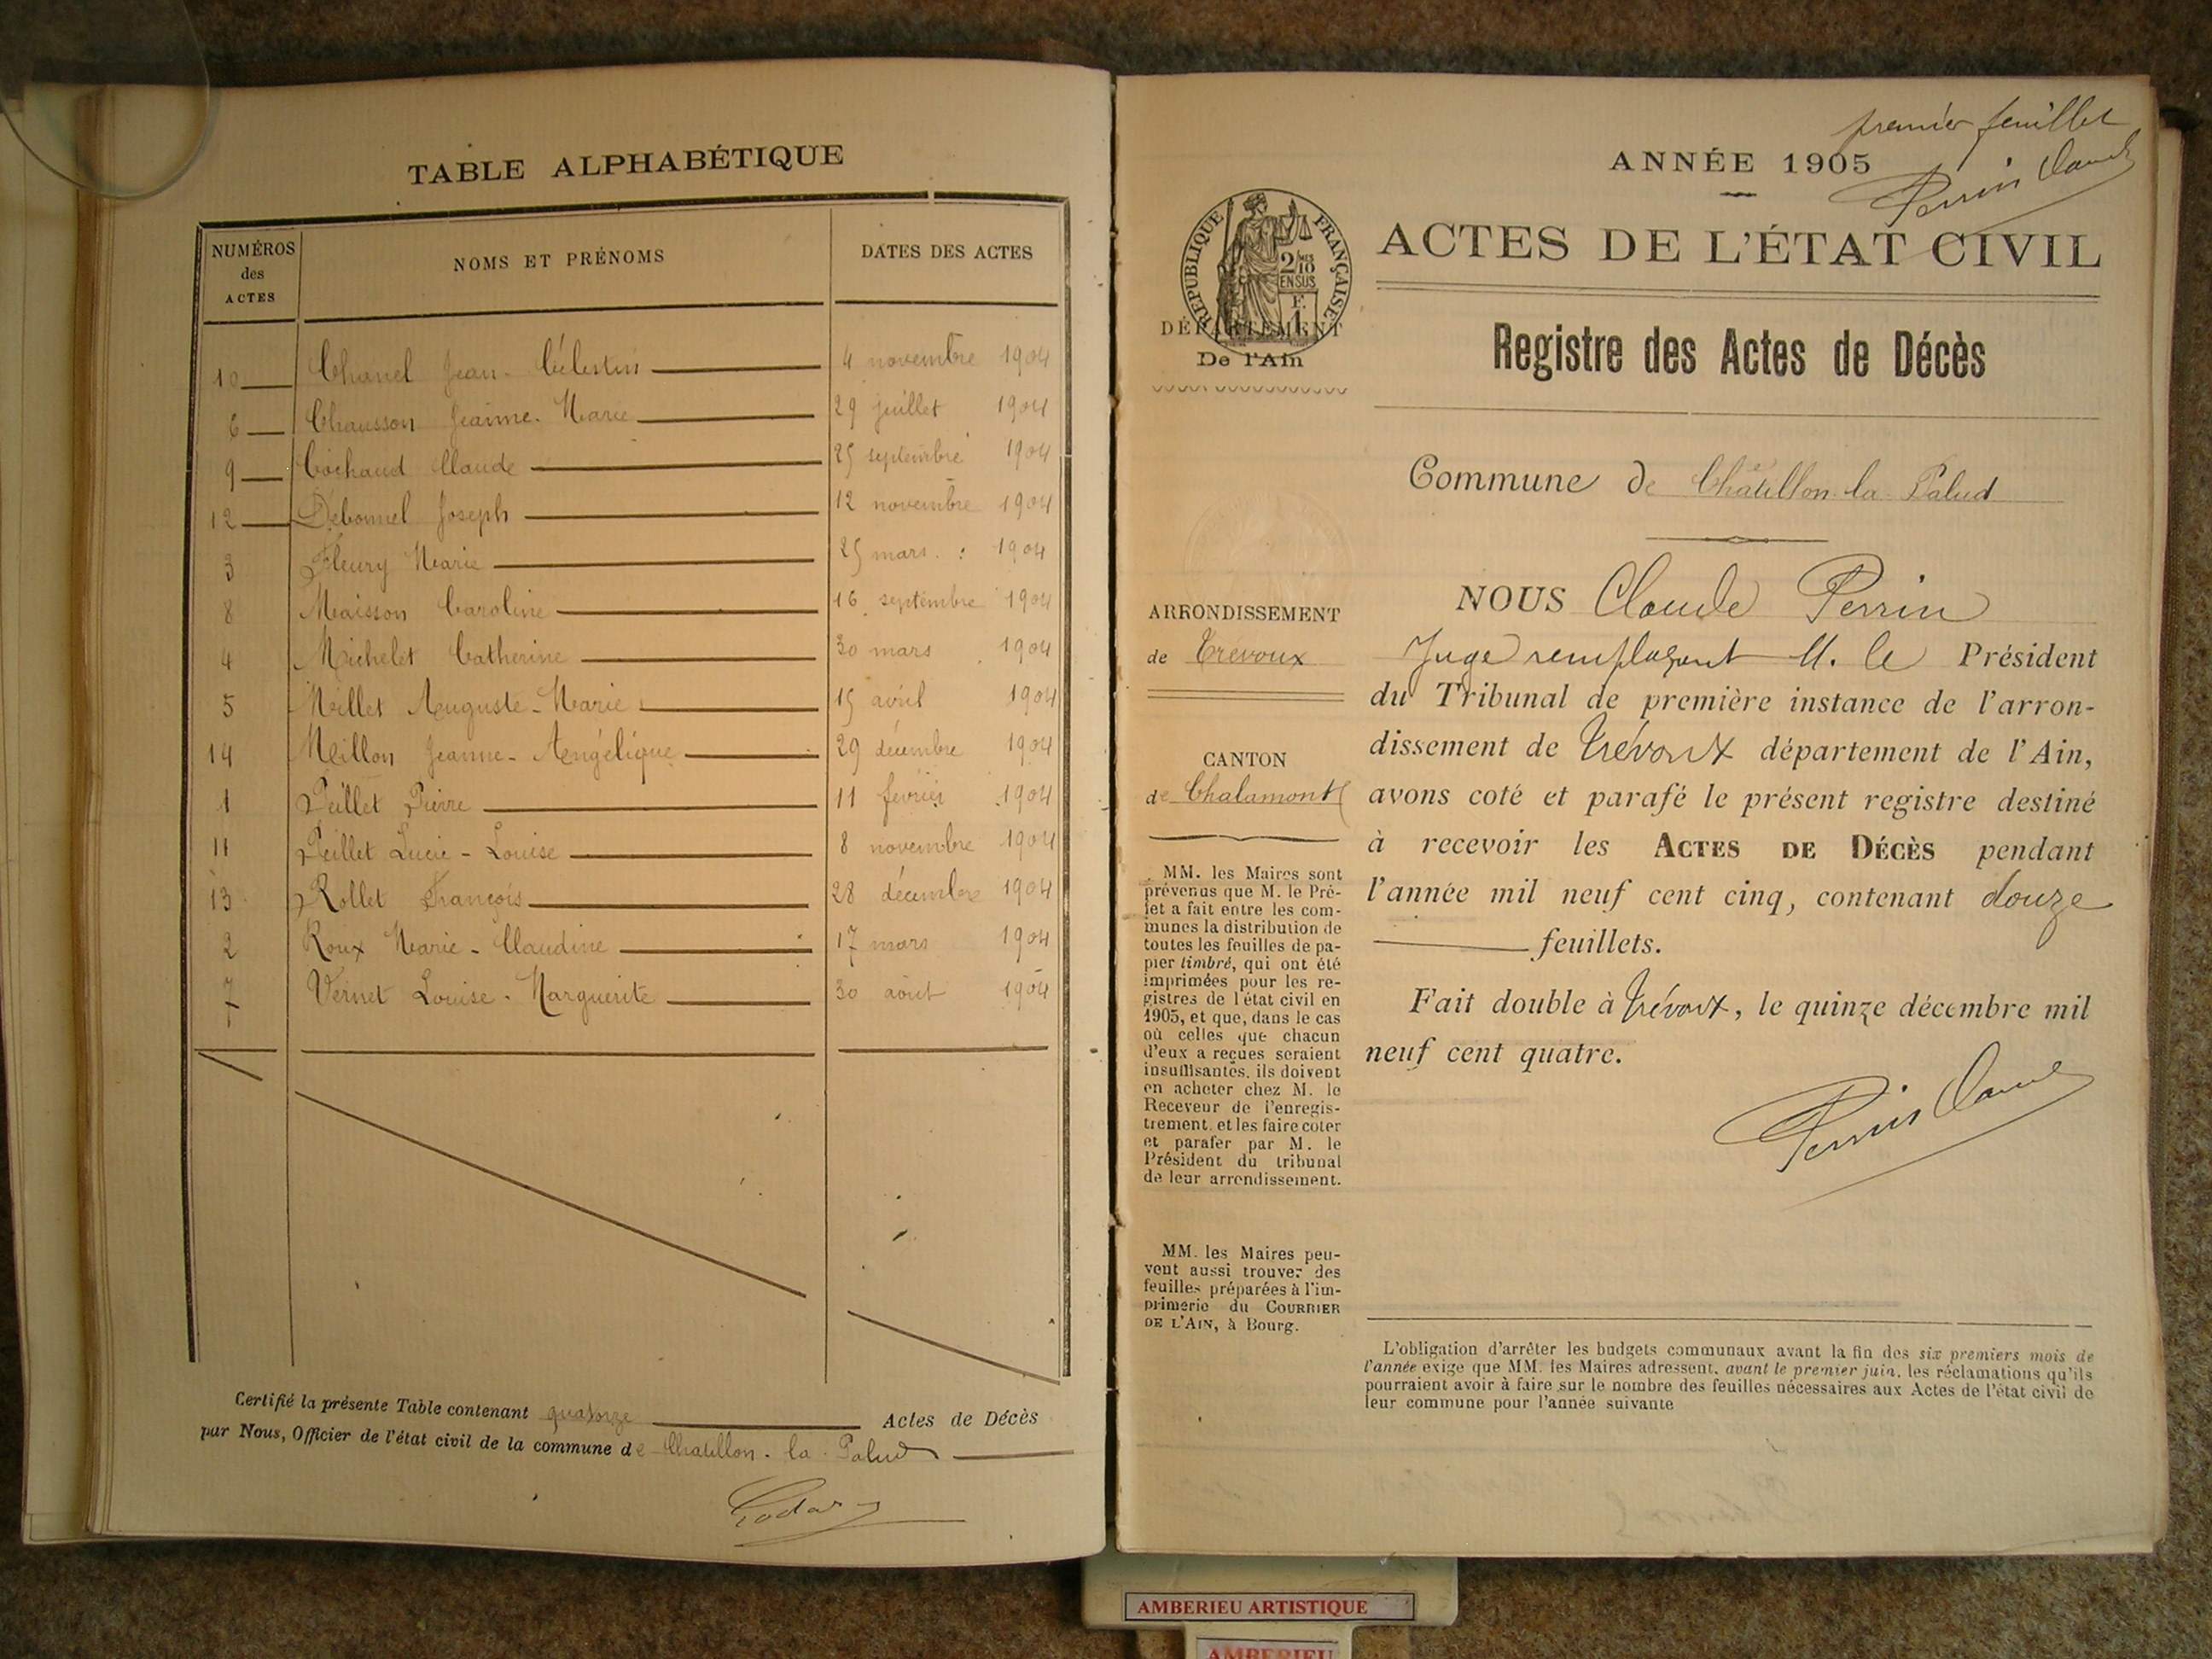 TABLE ALPHABÉTIQUE
NUMÉROS des ACTES NOMS ET PRÉNOMS DATES DES ACTES
10 Chanel Jean-Célestin 4 novembre 1904
6 Chausson Jeanne-Marie 29 juillet 1904
9 Cochaud Claude 25 septembre 1904
12 Debonnel Joseph 12 novembre 1904
3 Fleury Marie 25 mars 1904
8 Maisson Caroline 16 septembre 1904
4 Michelet Catherine 30 mars 1904
5 Millet Auguste-Marie 15 avril 1904
14 Millon Jeanne-Angélique 29 décembre 1904
1 Peillet Pierre 11 février 1904
11 Peillet Lucie-Louise 8 novembre 1904
13 Rollet François 28 décembre 1904
2 Roux Marie-Claudine 17 mars 1904
7 Vernet Louise-Marguerite 30 août 1904
Certifié la présente Table contenant quatorze Actes de Décès
par Nous, Officier de l'état civil de la commune de Chatillon-la-Palud
premier feuillet
Perrin Claude
ANNÉE 1905
ACTES DE L'ÉTAT CIVIL
RÉPUBLIQUE FRANÇAISE
2/10 EN SUS
F. 1
DÉPARTEMENT
De l'Ain
Registre des Actes de Décès
Commune de Châtillon-la-Palud
ARRONDISSEMENT
de Trévoux
CANTON
de Chalamont
MM. les Maires sont
prévenus que M. le Pré-
fet a fait entre les com-
munes la distribution de
toutes les feuilles de pa-
pier timbré, qui ont été
imprimées pour les re-
gistres de l'état civil en
1905, et que, dans le cas
où celles que chacun
d'eux a reçues seraient
insuffisantes, ils doivent
en acheter chez M. le
Receveur de l'enregis-
trement, et les faire coter
et parafer par M. le
Président du tribunal
de leur arrondissement.
MM. les Maires peu-
vent aussi trouver des
feuilles préparées à l'im-
primerie du COURRIER
DE L'AIN, à Bourg.
NOUS Claude Perrin
Juge remplaçant M. le Président
du Tribunal de première instance de l'arron-
dissement de Trévoux département de l'Ain,
avons coté et parafé le présent registre destiné
à recevoir les ACTES DE DÉCÈS pendant
l'année mil neuf cent cinq, contenant douze
feuillets.
Fait double à Trévoux, le quinze décembre mil
neuf cent quatre.
Perrin Claude
L'obligation d'arrêter les budgets communaux avant la fin des six premiers mois de
l'année exige que MM. les Maires adressent, avant le premier juin, les réclamations qu'ils
pourraient avoir à faire sur le nombre des feuilles nécessaires aux Actes de l'état civil de
leur commune pour l'année suivante
AMBERIEU ARTISTIQUE
AMBERIEU